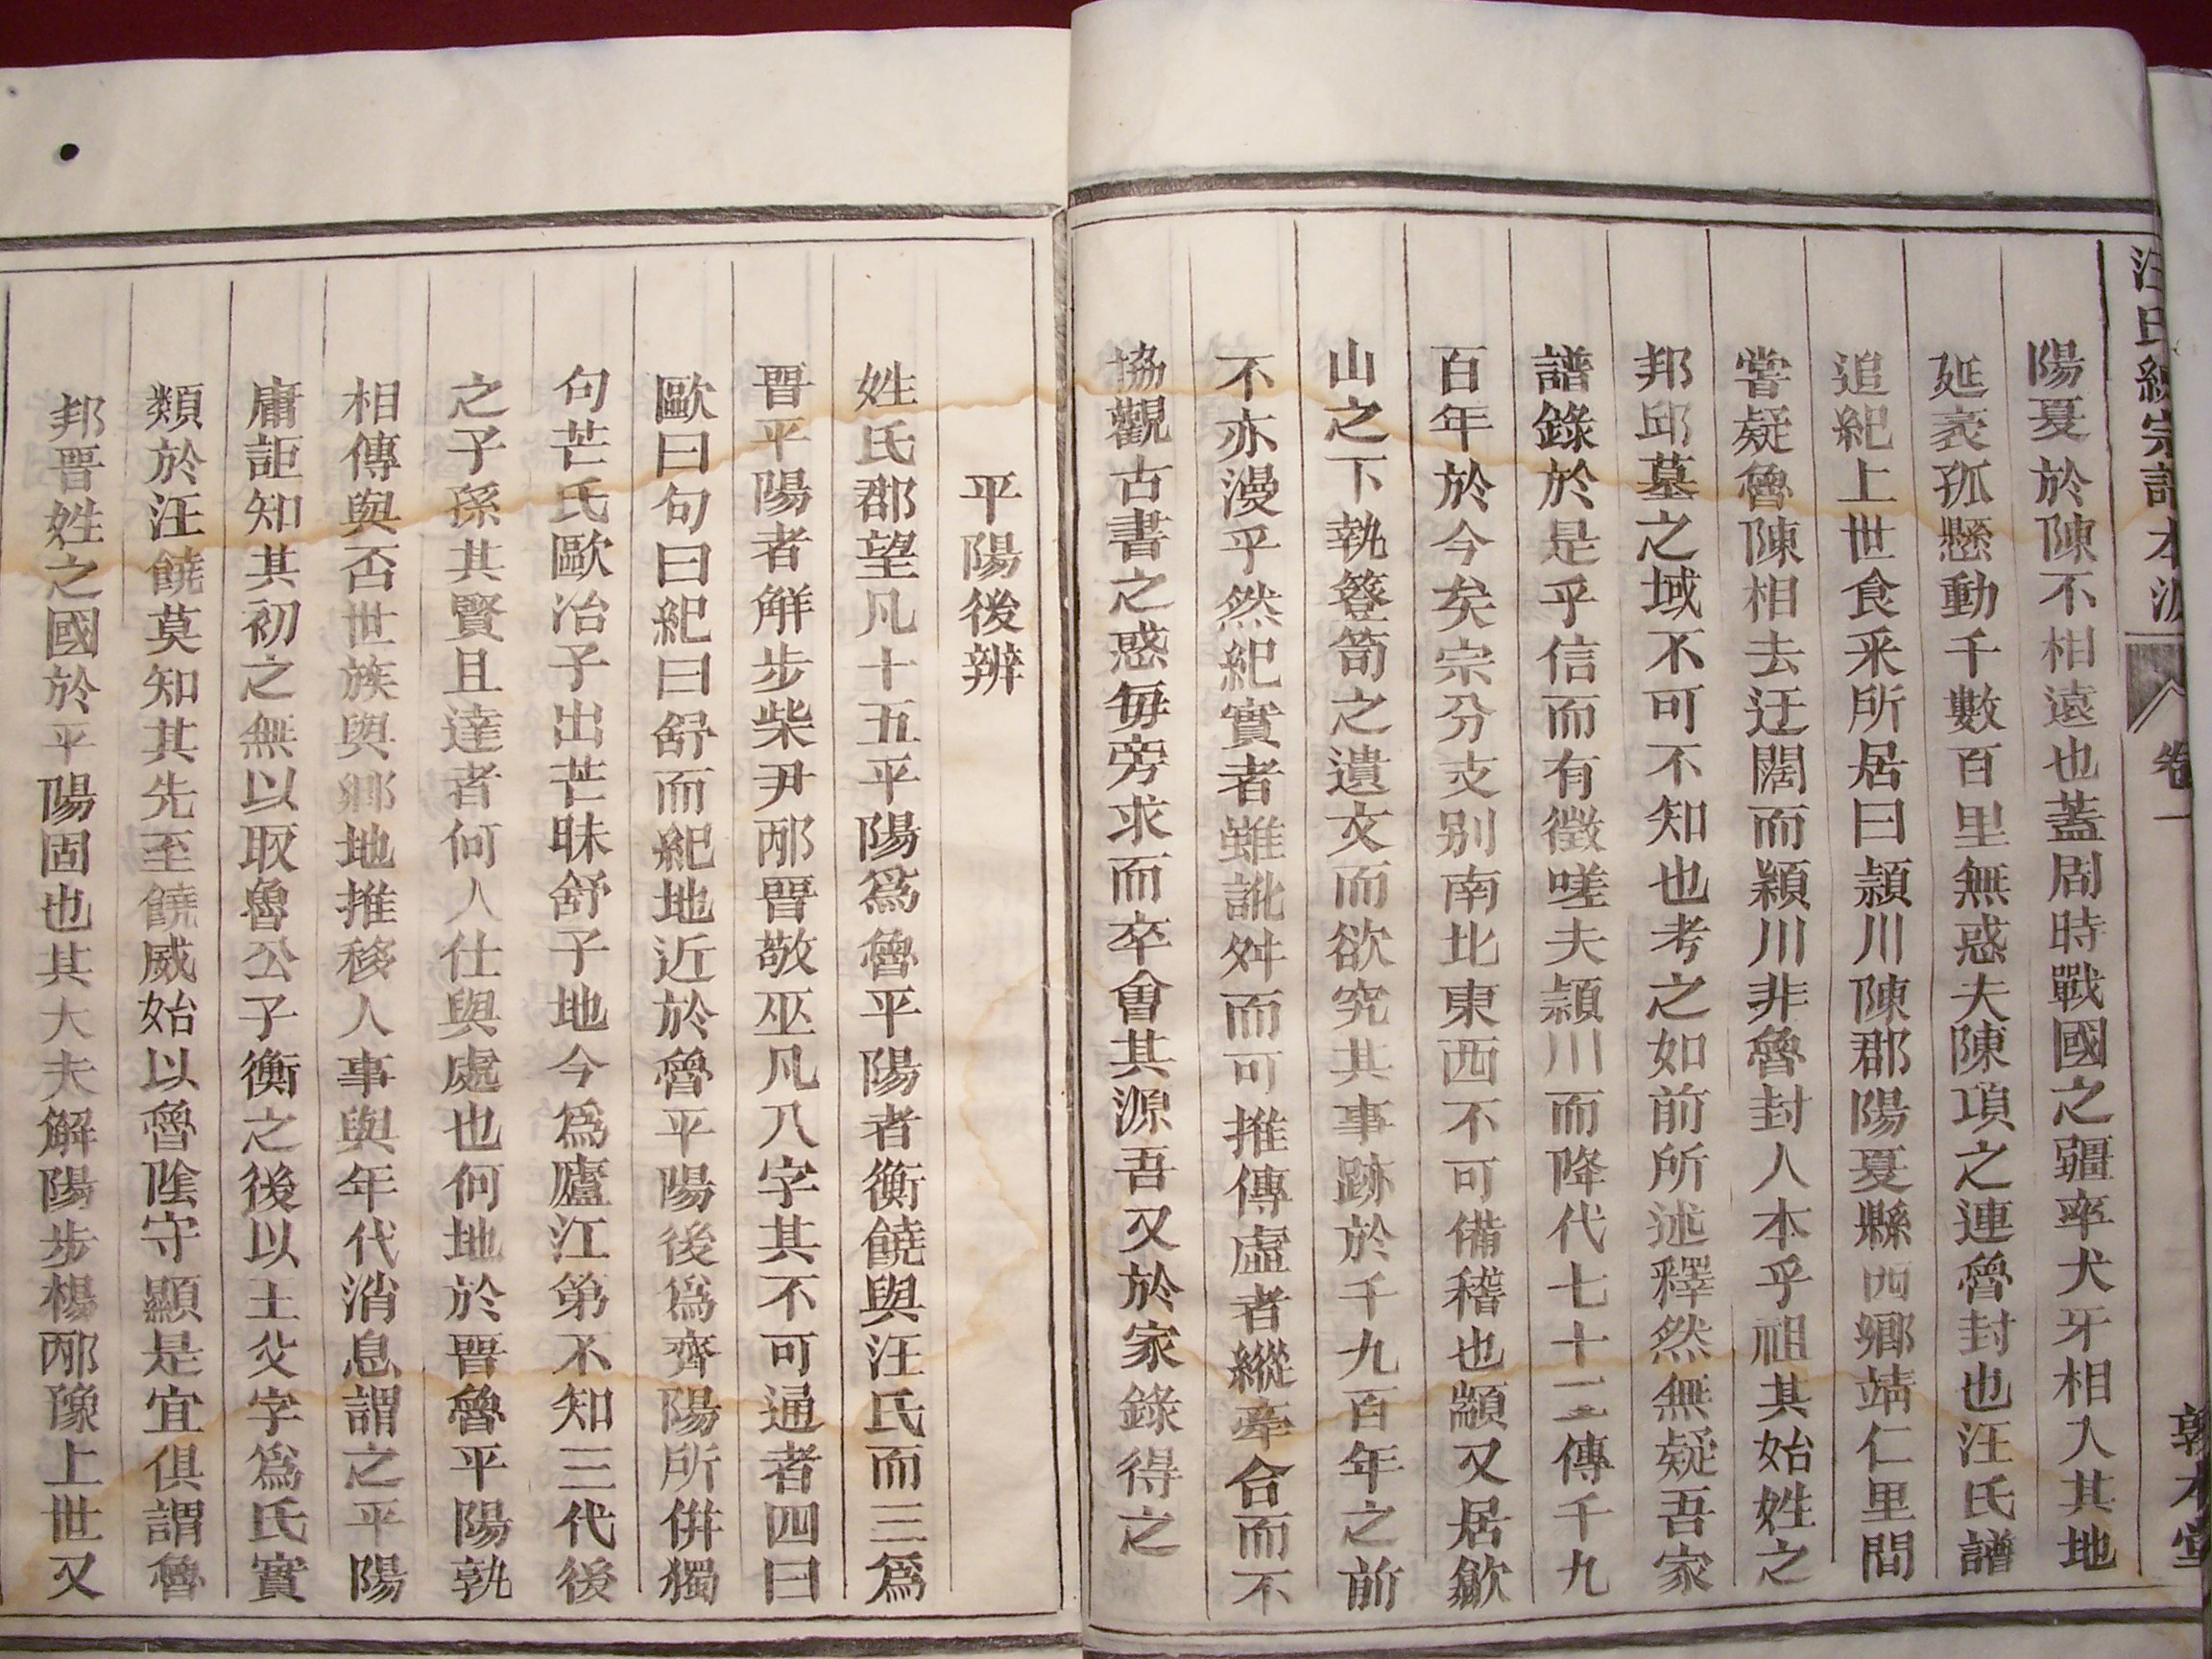 汪氏統宗譜本源
卷一
敦本堂
陽夏於陳不相遠也蓋周時戰國之疆率犬牙相入其地
延袤孤懸動千數百里無惑夫陳項之連魯封也汪氏譜
追紀上世食采所居曰潁川陳郡陽夏縣西鄉靖仁里間
嘗疑魯陳相去迂闊而潁川非魯封人本乎祖其始姓之
邦邱墓之域不可不知也考之如前所述釋然無疑吾家
譜錄於是乎信而有徵嗟夫潁川而降代七十二傳千九
百年於今矣宗分支別南北東西不可備稽也顓又居歙
山之下執簦笥之遺文而欲究其事跡於千九百年之前
不亦漫乎然紀實者雖訛舛而可推傳虛者縱牽合而不
協觀古書之惑每旁求而卒會其源吾又於家錄得之
平陽後辨
姓氏郡望凡十五平陽爲魯平陽者衡饒與汪氏而三爲
晉平陽者解步柴尹邴晉敬巫凡八字其不可通者四曰
歐曰句曰紀曰舒而紀地近於魯平陽後爲齊陽所併獨
句芒氏歐冶子出芒昧舒子地今爲廬江第不知三代後
之子孫其賢且達者何人仕與處也何地於晉魯平陽孰
相傳與否世族與鄉地推移人事與年代消息謂之平陽
庸詎知其初之無以取魯公子衡之後以王父字爲氏實
類於汪饒莫知其先至饒威始以魯陰守顯是宜俱謂魯
邦晉姓之國於平陽固也其大夫解陽步楊邴豫上世又